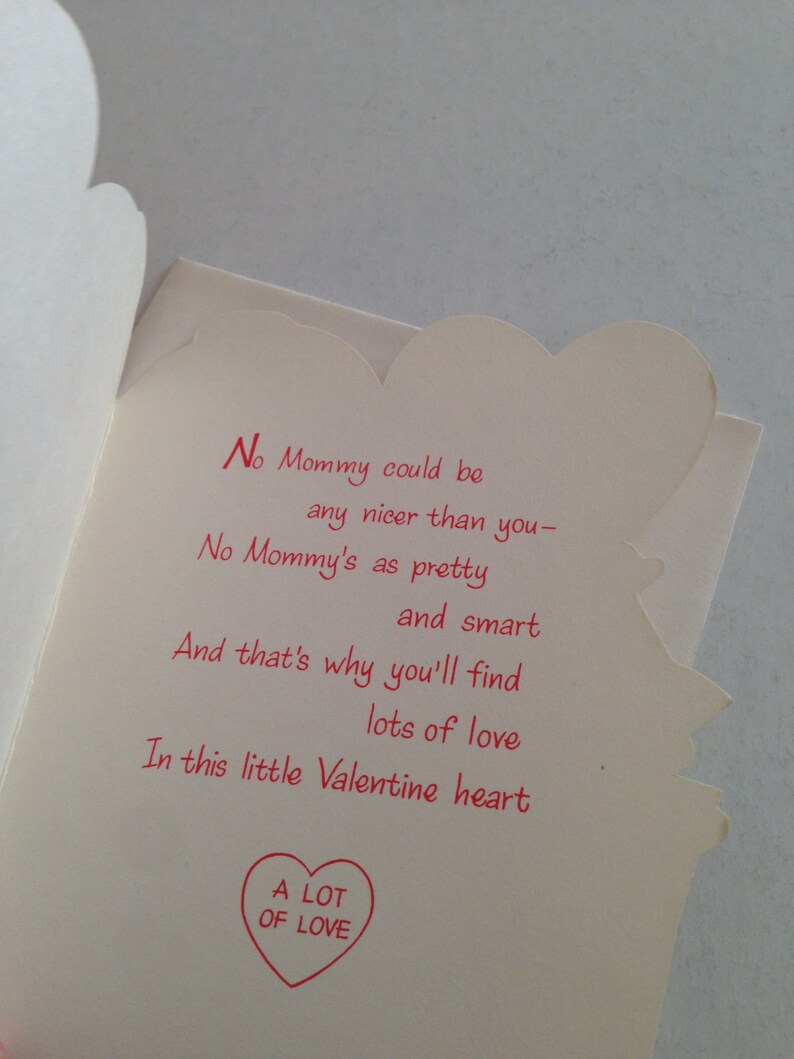 No Mommy could be
any nicer than you—
No Mommy's as pretty
and smart
And that's why you'll find
lots of love
In this little Valentine heart
A LOT
OF LOVE